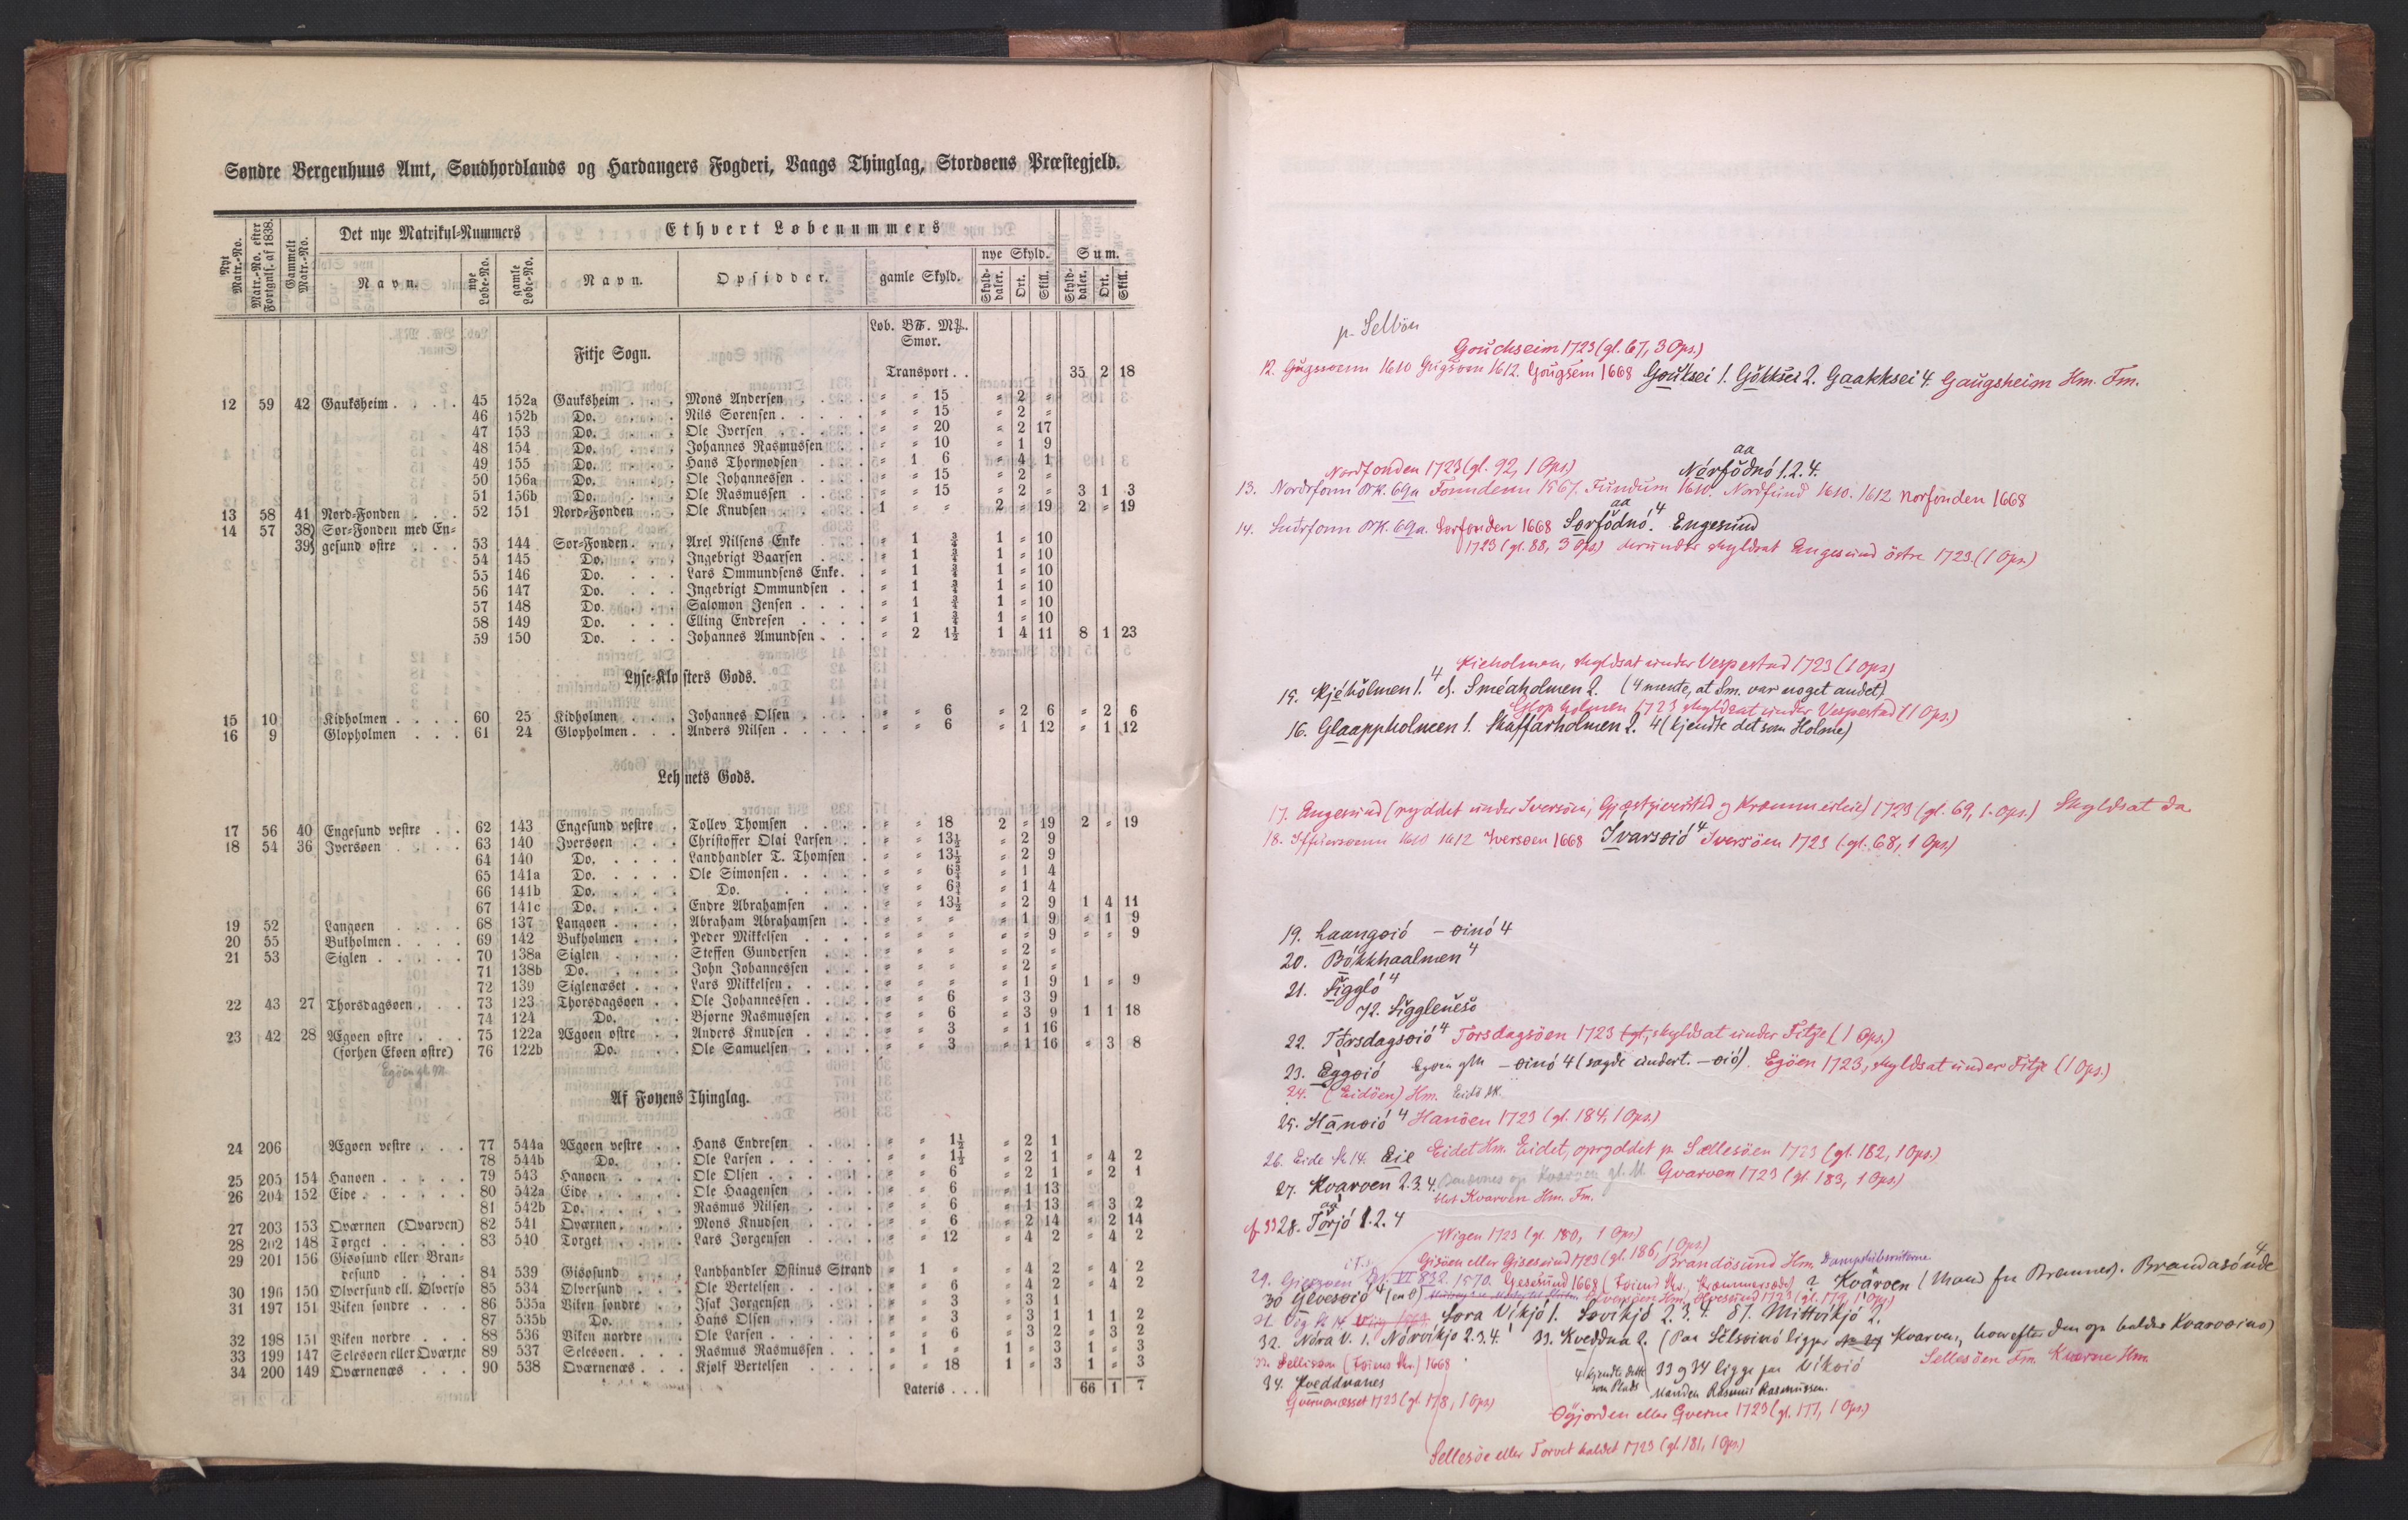 Søndre Bergenhuus Amt, Søndhordlands og Hardangers Fogderi, Vaags Thinglag, Stordøens Præstegjeld.
Nyt Matr.-No. | Matr.-No. efter Fortgnls. af 1838. | Gammelt Matr.-No. | Det nye Matrikul-Nummers | Ethvert Løbenummers | Sum.
Navn. | nye Løbe-No. | gamle Løbe-No. | Navn. | Opsidder. | gamle Skyld. | nye Skyld. | Skylddaler. | Ort. | Skill. | Skylddaler. | Ort. | Skill.
Løb. B℔. M℔.
Smør.
Fitje Sogn.
Transport . . 35 2 18
12 59 42 Gauksheim . . . . 45 152a Gauksheim . . . Mons Andersen . . . . " " 15 " 2 "
46 152b Do. Nils Sørensen . . . . . " " 15 " 2 "
47 153 Do. Ole Iversen . . . . . " " 20 " 2 17
48 154 Do. Johannes Rasmussen . " " 10 " 1 9
49 155 Do. Hans Thormodsen . . . " 1 6 " 4 1
50 156a Do. Ole Johannessen . . . . " " 15 " 2 "
51 156b Do. Ole Rasmussen . . . . " " 15 " 2 " 3 1 3
13 58 41 Nord-Fonden . . . 52 151 Nord-Fonden . . Ole Knudsen . . . . 1 " " 2 " 19 2 " 19
14 57 38) Sør-Fonden med En-
39) gesund østre . . . 53 144 Sør-Fonden . . . Axel Nilsens Enke . . " 1 ¾ 1 " 10
54 145 Do. . . . Ingebrigt Baarsen . . . " 1 ¾ 1 " 10
55 146 Do. . . . Lars Ommundsens Enke . . " 1 ¾ 1 " 10
56 147 Do. . . . Ingebrigt Ommundsen . . " 1 ¾ 1 " 10
57 148 Do. . . . Salomon Jensen . . . . " 1 ¾ 1 " 10
58 149 Do. . . . Elling Endresen . . . . " 1 ¾ 1 " 10
59 150 Do. . . . Johannes Amundsen . . . " 2 1½ 1 4 11 8 1 23
Lyse-Klosters Gods.
15 10 Kidholmen . . . . 60 25 Kidholmen . . . Johannes Olsen . . . . " " 6 " 2 6 " 2 6
16 9 Glopholmen . . . 61 24 Glopholmen . . . Anders Nilsen . . . . . " " 6 " 1 12 " 1 12
Lehnets Gods.
17 56 40 Engesund vestre . . 62 143 Engesund vestre . Tollev Thomsen . . . . " " 18 2 " 19 2 " 19
18 54 36 Iversøen . . . . 63 140 Iversøen . . . Christoffer Olai Larsen . . " " 13½ " 2 9
64 140 Do. . . . . Landhandler T. Thomsen . " " 13½ " 2 9
65 141a Do. . . . . Ole Simonsen . . . . " " 6¾ " 1 4
66 141b Do. . . . . Do. . . . . " " 6¾ " 1 4
67 141c Do. . . . . Endre Abrahamsen . . . " " 13½ " 2 9 1 4 11
19 52 Langøen . . . . 68 137 Langøen . . . . Abraham Abrahamsen . . " " " " 1 9 " 1 9
20 55 Bukholmen . . . . 69 142 Bukholmen . . . Peder Mikkelsen . . . . " " " " " 9 " " 9
21 53 Siglen . . . . . 70 138a Siglen . . . . Steffen Gundersen . . . " " " " 2 "
71 138b Do. . . . . John Johannessen . . . " " " " 2 "
72 139 Siglenæset . . . Lars Mikkelsen . . . . " " " " 1 9 1 " 9
22 43 27 Thorsdagsøen . . . 73 123 Thorsdagsøen . . Ole Johannessen . . . . " " 6 " 3 9
74 124 Do. . . Bjørne Rasmussen . . . " " 6 " 3 9 1 1 18
23 42 28 Ægøen østre . . . 75 122a Ægøen østre . . Anders Knudsen . . . . " " 3 " 1 16
(forhen Ekøen østre) 76 122b Do. . . Ole Samuelsen . . . . " " 3 " 1 16 " 3 8
Egöen gl. M.
Af Føyens Thinglag.
24 206 Ægøen vestre . . . 77 544a Ægøen vestre . . Hans Endresen . . . . " " 1½ " 2 1
78 544b Do. Ole Larsen . . . . . . " " 1½ " 2 1 " 4 2
25 205 154 Hanøen . . . . . 79 543 Hanøen . . . . Ole Olsen . . . . . " " 6 " 2 1 " 2 1
26 204 152 Eide . . . . . . 80 542a Eide . . . . . Ole Haagensen . . . . " " 6 " 1 13
81 542b Do. . . . . . Rasmus Nilsen . . . . " " 6 " 1 13 " 3 2
27 203 153 Qværnen (Qvarven) 82 541 Qværnen . . . . Mons Knudsen . . . . " " 6 " 2 14 " 2 14
28 202 148 Torget . . . . . 83 540 Torget . . . . Lars Jørgensen . . . . " " 12 " 4 2 " 4 2
29 201 156 Gisøsund eller Bran-
desund . . . . 84 539 Gisøsund . . . Landhandler Østinus Strand " 1 " " 4 2 " 4 2
30 196 150 Olversund ell. Olversø 85 534 Olversund . . . Ole Bertelsen . . . . " " 6 " 4 2 " 4 2
31 197 151 Viken søndre . . . 86 535a Viken søndre . . Isak Jørgensen . . . . " " 3 " 3 1
87 535b Do. Hans Olsen . . . . . " " 3 " 3 1 1 1 2
32 198 151 Viken nordre . . . 88 536 Viken nordre . . Ole Larsen . . . . . " " 6 " 3 2 " 3 2
33 199 147 Selesøen eller Qværne 89 537 Selesøen . . . . Rasmus Rasmussen . . . " 1 " 1 " 3 1 " 3
34 200 149 Qværnenæs . . . 90 538 Qværnenæs . . . Kjølf Bertelsen . . . . " " 18 1 " 3 1 " 3
Lateris . . . 66 1 7
p. Selbön
Gouchseim 1723 (gl. 67, 3 Ops.)
12. Gugsoenn 1610 Gugsom 1612. Gougsem 1668 Gouksei 1. Gökksei 2. Gaakksei 4. Gaugsheim Hm. Fm.
aa
Nordfonden 1723 (gl. 92, 1 Ops.) Nórfŏdnó 1.2.4.
13. Nordrfonn BK. 69a Fonndenn 1567. Fundum 1610. Nordfund 1610. 1612 Norfonden 1668
aa
14. Sudrfonn BK. 69a. Sorfonden 1668 Sørfŏdnó 4. Engesund
1723 (gl. 88, 3 Ops.) herunder skyldsat Engesund östre 1723. (1 Ops.)
Kieholmen, skyldsat under Vespestad 1723 (1 Ops)
15. Kjéhŏlmen 1. 4 el. Sméaholmen 2. (4 mente, at Sm. var noget andet)
Glopholmen 1723 skyldsat under Vespestad (1 Ops.)
16. Glaappholmen 1. Skaffarholmen 2. 4 (kjendte det som Holme)
17. Engesund (ryddet under Iversöen, Gjæstgiversted og Kræmmerleie) 1723 (gl. 69, 1. Ops.) Skyldsat da
18. Iffuersoenn 1610 1612 Iversøen 1668 Ivarsøió 4 Iversöen 1723 (gl. 68, 1 Ops)
19. Laangøió – øinó 4
20. Bókkhaalmen 4
21. Siggló 4
72. Siggleneso
22. Tórsdagsøió 4 Torsdagsöen 1723 gl., skyldsat under Fitje (1 Ops.)
23. Eggøió Egøen glM – øinó 4 (sagde undert. – øió). Egöen 1723, skyldsat under Fitje (1 Ops.)
24. (Eidöen) Hm.
25. Hanøió 4 Hanöen 1723 (gl. 184, 1 Ops.)
26. Eide Sk 14. Eie Eidet Hm. Eidet, opryddet p. Sællesöen 1723 (gl. 182, 1 Ops.)
27. Kvarven 2.3.4. Qvarven 1723 (gl. 183, 1 Ops.)
blot Kvarven Hm. Fm.
aa
cf 33 28. Tŏrjó 1.2.4
Wigen 1723 (gl. 180, 1 Ops)
Gisöen eller Gisesund 1723 (gl. 186, 1 Ops.) Brandösund Hm. Dampskibsruterne
29. Giessøen 1570. Gesesund 1668 ? Kvarven (Mand fra Bremnes). Brandasónde 4
30 Ølvesøió 4 Ølvesöen Hm, Ølvesund 1723 (gl. 179, 1 Ops)
31. Søra Víkjó 1. Søvikjó 2.3.4. 87. Mittvikjó 2.
32. Nóra V. 1. Nórvíkjo 2.3.4. 33. Kveddna 2. (Paa Sélsøinó ligger Kvarven, hvorefter den og kaldes Kvarvøino)
33. Sellisøen (Føiens Skr.) 1668 4 kjendte dette som Plads 33 og 34 ligge paa Víkøió Sellesöen Fm. Kværne Hm.
34. Kveddnanes Manden Rasmus Rasmussen.
Qvernenæsset 1723 (gl. 178, 1 Ops) Ögjorden eller Qverne 1723 (gl. 177, 1 Ops.)
Sellesöe eller Torvet kaldet 1723 (gl. 181, 1 Ops.)